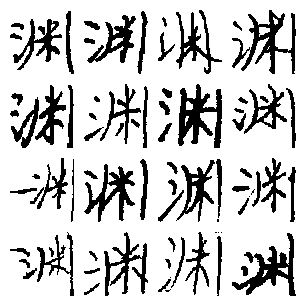 渊渊渊渊
渊渊渊渊
渊渊渊渊
渊渊渊渊